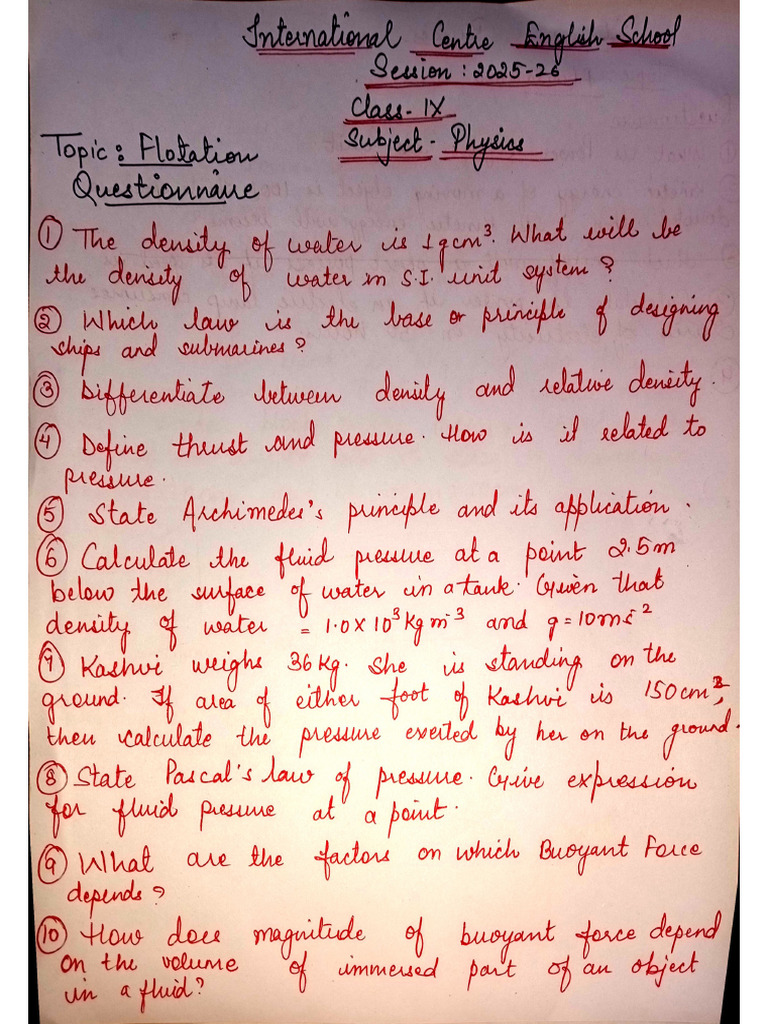 International Centre English School
Session : 2025-26
Class- IX
Subject - Physics
Topic : Flotation
Questionnaire
① The density of water is 1gcm³. What will be
the density of water in S.I. unit system?
② Which law is the base or principle of designing
ships and submarines?
③ Differentiate between density and relative density.
④ Define thrust and pressure. How is it related to
pressure.
⑤ State Archimedes's principle and its application.
⑥ Calculate the fluid pressure at a point 2.5m
below the surface of water in a tank. Given that
density of water = 1.0×10³ kg m⁻³ and g=10ms⁻²
⑦ Kashvi weighs 36kg. She is standing on the
ground. If area of either foot of Kashvi is 150cm²,
then calculate the pressure exerted by her on the ground.
⑧ State Pascal's law of pressure. Give expression
for fluid pressure at a point.
⑨ What are the factors on which Buoyant Force
depends?
⑩ How does magnitude of buoyant force depend
on the volume of immersed part of an object
in a fluid?